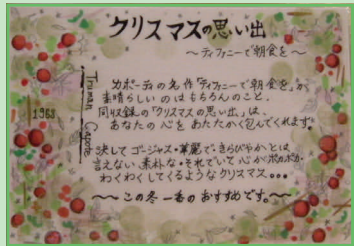 クリスマスの思い出
～ティファニーで朝食を～
Truman Capote
1968
カポーティの名作「ティファニーで朝食を」が
素晴らしいのはもちろんのこと、
同収録の「クリスマスの思い出」は、
あなたの心をあたたかく包んでくれます。
決してゴージャス・華麗で・きらびやかとは
言えない、素朴な・それでいて心がポカポカ・
わくわくしてくるようなクリスマス。。。
～この冬一番のおすすめです。～